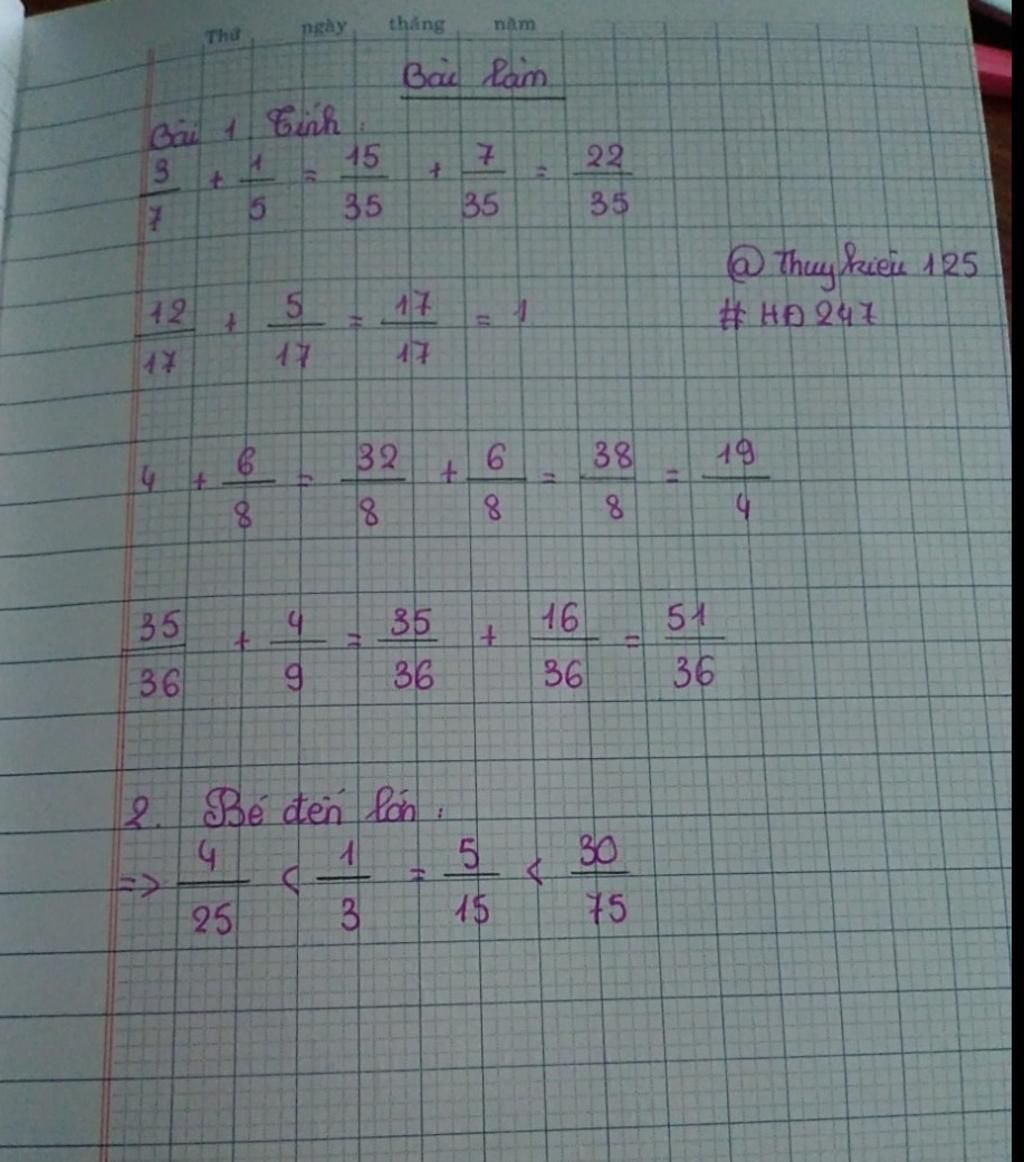 Thứ ngày tháng năm
Bài làm
Bài 1 Tính :
3/7 + 1/5 = 15/35 + 7/35 = 22/35
@ Thuykieu 125
# HĐ 247
12/17 + 5/17 = 17/17 = 1
4 + 6/8 = 32/8 + 6/8 = 38/8 = 19/4
35/36 + 4/9 = 35/36 + 16/36 = 51/36
2. Bé đến lớn :
=> 4/25 < 1/3 = 5/15 < 30/75